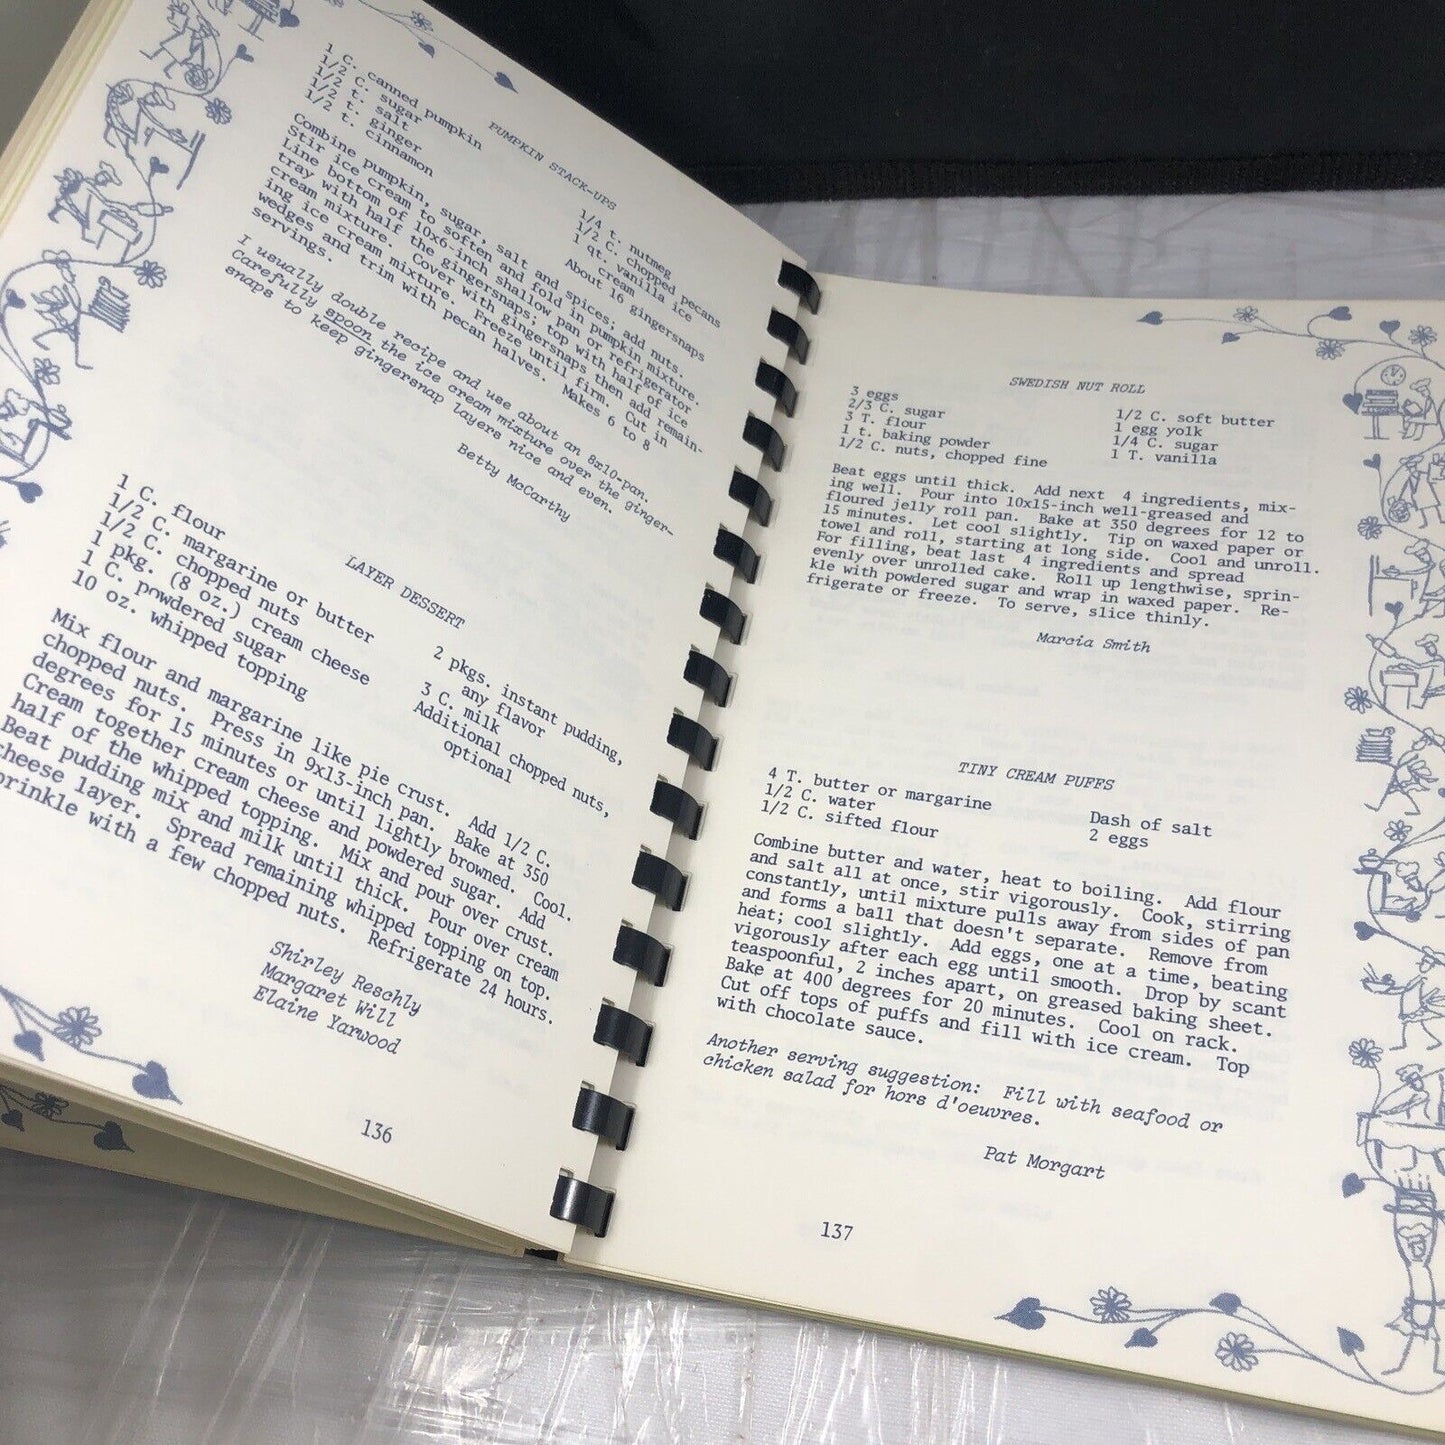 PUMPKIN STACK-UPS
1 C. canned pumpkin
1/2 C. sugar
1/2 t. salt
1/2 t. ginger
1/2 t. cinnamon
1/4 t. nutmeg
1/2 C. chopped pecans
1 qt. vanilla ice
cream
About 16 gingersnaps
Combine pumpkin, sugar, salt and spices; add nuts.
Stir ice cream to soften and fold in pumpkin mixture.
Line bottom of 10x6-inch shallow pan or refrigerator
tray with half the gingersnaps; top with half of ice
cream mixture. Cover with gingersnaps then add remain-
ing ice cream mixture. Freeze until firm. Cut in
wedges and trim with pecan halves. Makes 6 to 8
servings.
I usually double recipe and use about an 8x10-pan.
Carefully spoon the ice cream mixture over the ginger-
snaps to keep gingersnap layers nice and even.
Betty McCarthy
LAYER DESSERT
1 C. flour
1/2 C. margarine or butter
1/2 C. chopped nuts
1 pkg. (8 oz.) cream cheese
1 C. powdered sugar
10 oz. whipped topping
2 pkgs. instant pudding,
any flavor
3 C. milk
Additional chopped nuts,
optional
Mix flour and margarine like pie crust. Add 1/2 C.
chopped nuts. Press in 9x13-inch pan. Bake at 350
degrees for 15 minutes or until lightly browned. Cool.
Cream together cream cheese and powdered sugar. Add
half of the whipped topping. Mix and pour over crust.
Beat pudding mix and milk until thick. Pour over cream
cheese layer. Spread remaining whipped topping on top.
prinkle with a few chopped nuts. Refrigerate 24 hours.
Shirley Reschly
Margaret Will
Elaine Yarwood
136
SWEDISH NUT ROLL
3 eggs
2/3 C. sugar
3 T. flour
1 t. baking powder
1/2 C. nuts, chopped fine
1/2 C. soft butter
1 egg yolk
1/4 C. sugar
1 T. vanilla
Beat eggs until thick. Add next 4 ingredients, mix-
ing well. Pour into 10x15-inch well-greased and
floured jelly roll pan. Bake at 350 degrees for 12 to
15 minutes. Let cool slightly. Tip on waxed paper or
towel and roll, starting at long side. Cool and unroll.
For filling, beat last 4 ingredients and spread
evenly over unrolled cake. Roll up lengthwise, sprin-
kle with powdered sugar and wrap in waxed paper. Re-
frigerate or freeze. To serve, slice thinly.
Marcia Smith
TINY CREAM PUFFS
4 T. butter or margarine
1/2 C. water
1/2 C. sifted flour
Dash of salt
2 eggs
Combine butter and water, heat to boiling. Add flour
and salt all at once, stir vigorously. Cook, stirring
constantly, until mixture pulls away from sides of pan
and forms a ball that doesn't separate. Remove from
heat; cool slightly. Add eggs, one at a time, beating
vigorously after each egg until smooth. Drop by scant
teaspoonful, 2 inches apart, on greased baking sheet.
Bake at 400 degrees for 20 minutes. Cool on rack.
Cut off tops of puffs and fill with ice cream. Top
with chocolate sauce.
Another serving suggestion: Fill with seafood or
chicken salad for hors d'oeuvres.
Pat Morgart
137